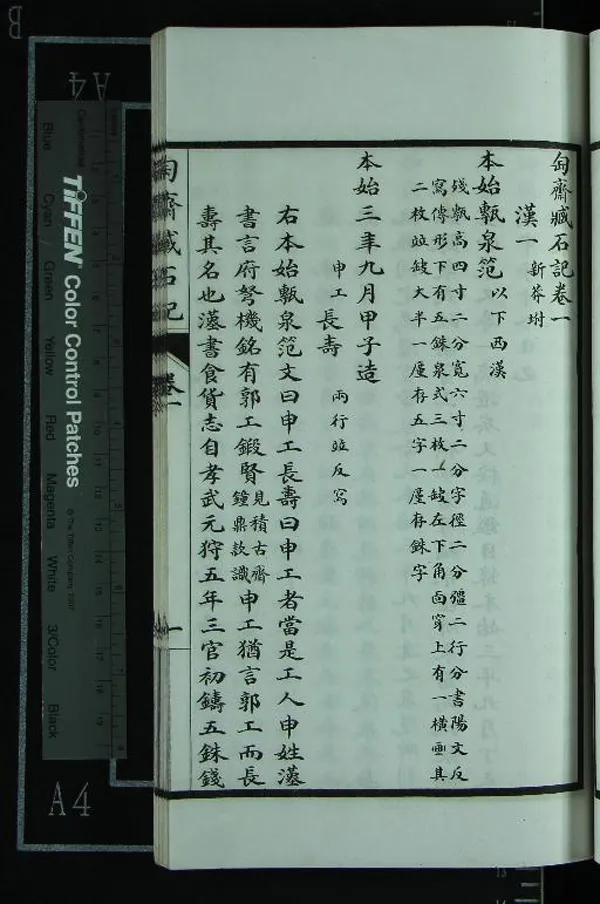 匋齋臧石記卷一
漢一 新莽坿
本始甎泉笵 以下西漢
殘甎高四寸二分寬六寸二分字徑二分彊二行分書陽文反
寫傳形下有五銖泉式三枚一缺左下角面穿上有一橫畫其
二枚竝缺大半一厪存五字一厪存銖字
本始三年九月甲子造
申工長壽 兩行竝反寫
右本始甎泉笵文曰申工長壽曰申工者當是工人申姓漢
書言府弩機銘有郭工鍛賢見積古齋鐘鼎款識申工猶言郭工而長
壽其名也漢書食貨志自孝武元狩五年三官初鑄五銖錢
匋齋臧石記
卷一
一
TIFFEN® Color Control Patches
© The Tiffen Company, 2007
Blue
Cyan
Green
Yellow
Red
Magenta
White
3/Color
Black
A4
A4
B